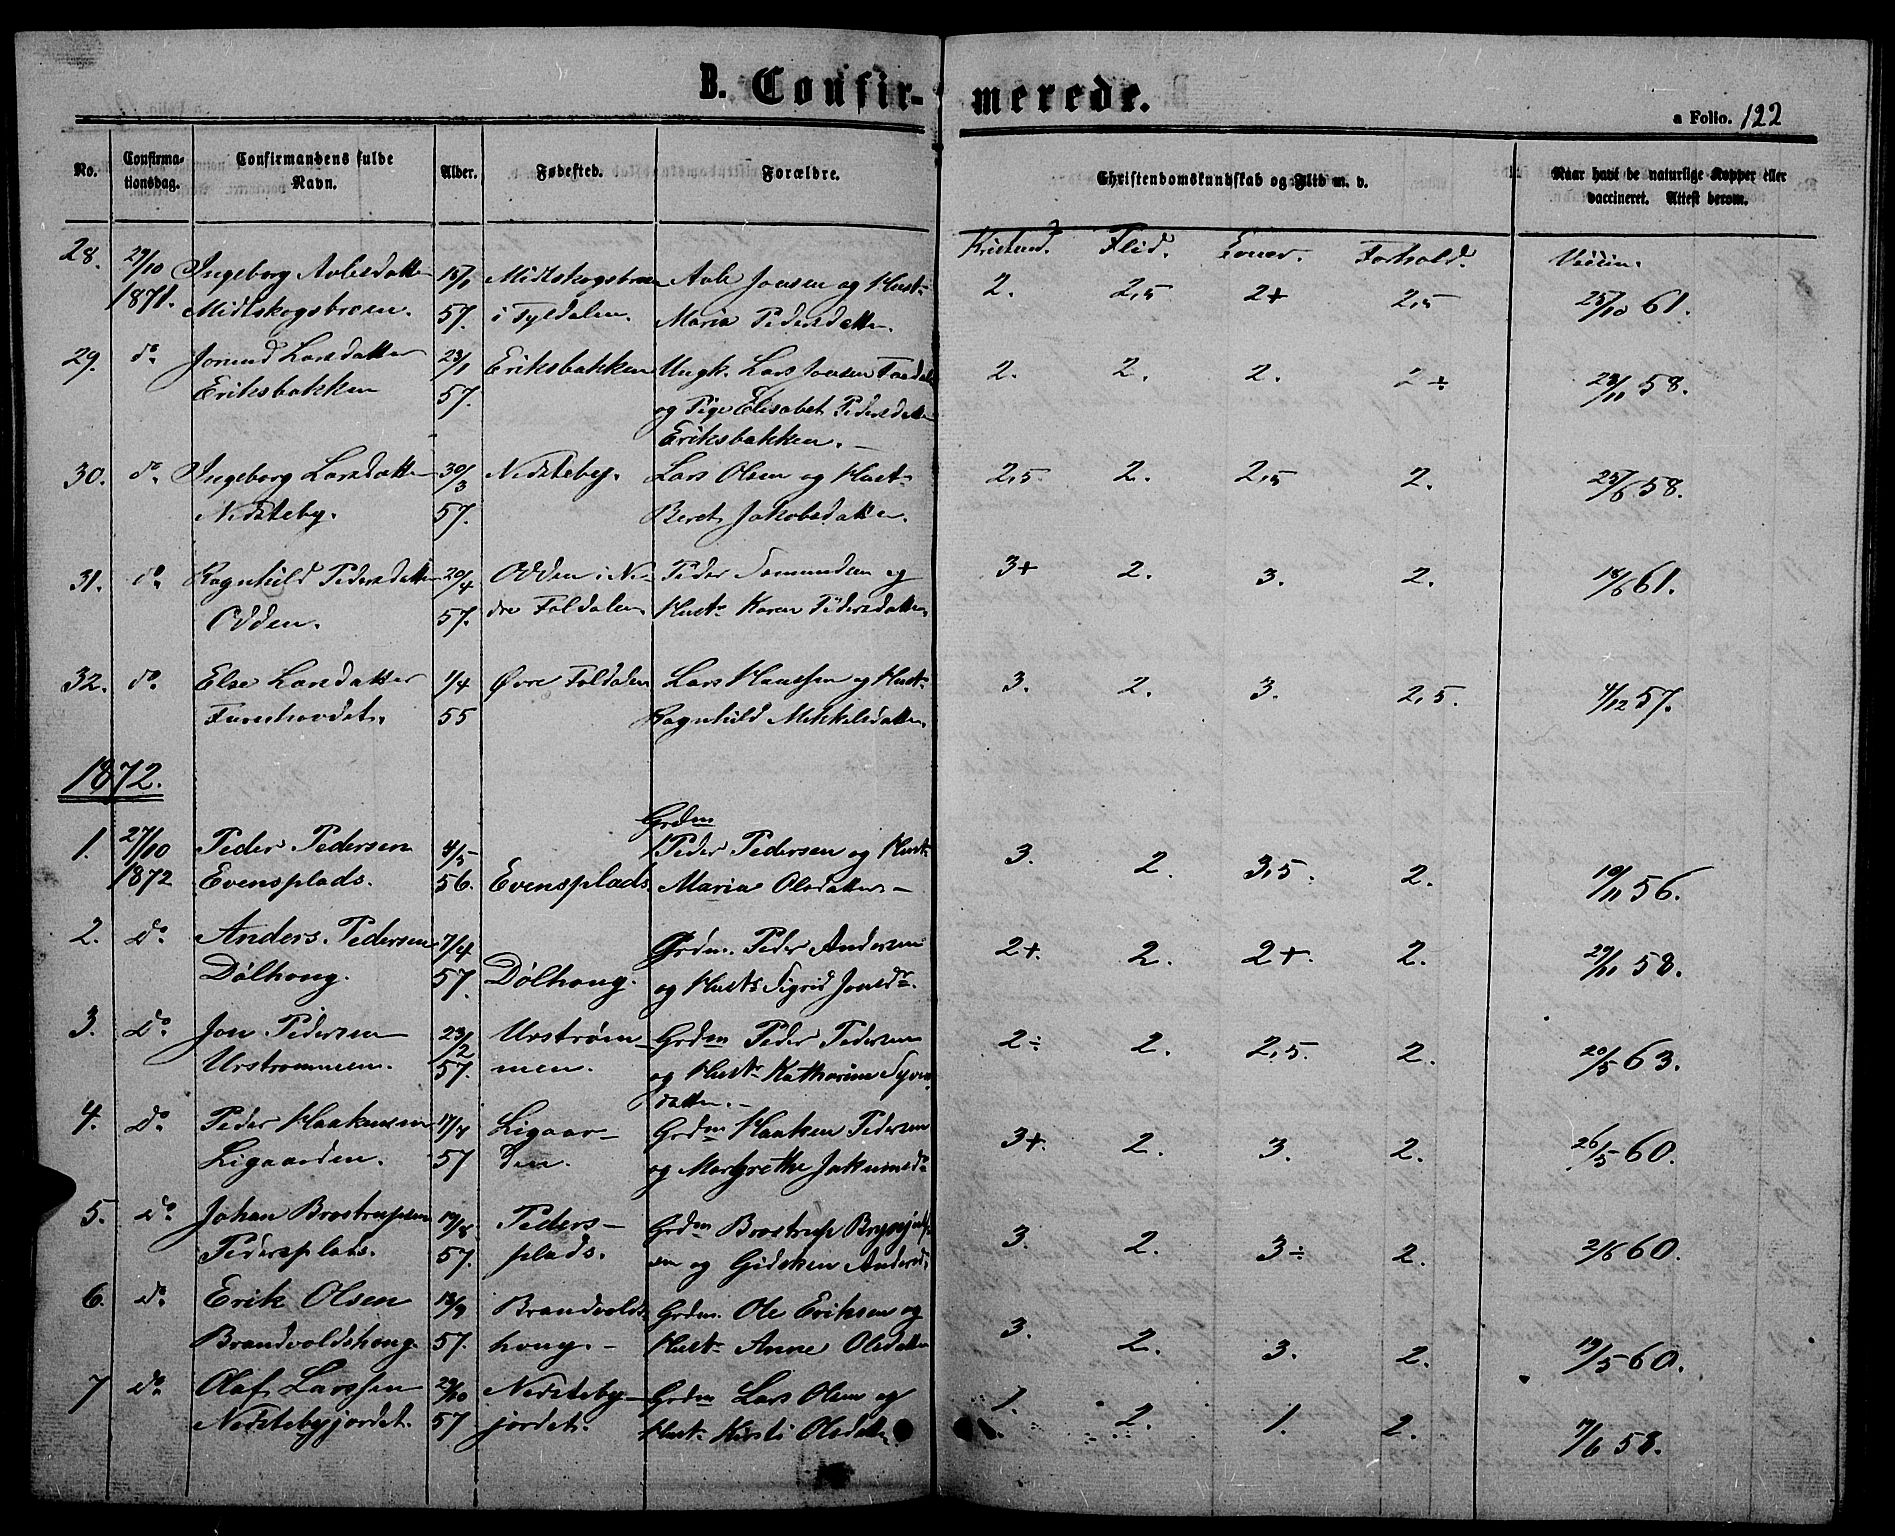 B. Confirmerede.
a Folio. 122
No. Confirmationsdag. Confirmandens fulde Navn. Alder. Fødested. Forældre. Christendomskundskab og Flid m. v. Naar havt de naturlige Kopper eller vaccineret. Attest derom.
Flid. Forhold. Vaccin.
28. 29/10 Ingeborg Avlesdatter 15/1 Midtskogsbræen Avle Jonsen og Hust. 2. 2,5 2+ 2,5 25/10 61.
1871. Midtskogsbræen. 57. i Tyldalen. Maria Pedersdatter.
29. do. Jorund Larsdatter 23/1 Eriksbakken Ungk. Lars Jonsen 2. 2. 2. 2÷ 23/11 58.
Eriksbakken 57. og Pige Elisabet Pedersdatter
Eriksbakken. —
30. do. Ingeborg Larsdatter 30/3 Nedsteby. Lars Olsen og Hust. 2,5. 2. 2,5 2. 25/6 58.
Nedsteby. 57. Beret Jakobsdatter.
31. do. Ragnhild Pedersdatter 20/4 Odden i Ne- Peder Tomundsen og 3+ 2. 3. 2. 18/6 61.
Odden. 57. dre Foldalen Hust. Karen Pedersdatter
32. do. Else Larsdatter 1/4 Øvre Foldalen Lars Hansen og Hust. 3. 2. 3. 2,5. 4/12 57.
Furuhovdet. 55 Ragnhild Mikkelsdatter.
1872.
1. 27/10 Peder Pedersen 4/5 Grdm Peder Pedersen og Hust. 3. 2. 3,5. 2. 10/11 56.
1872 Evensplads. 56. Evensplads. Maria Olsdatter. —
2. Do. Anders Pedersen 7/4 Grdm. Peder Andersen 2+. 2. 2+. 2. 29/11 58.
Dølhoug. 57. Dølhoug. og Hust. Sigrid Jonsdr.
3. Do. Jon Pedersen 23/2 Urstrøm- Grdm Peder Pedersen 2÷ 2. 2,5. 2. 20/5 63.
Urstrømmen. 57. men. og Hust. Katharine
datter. —
4. Do. Peder Haakensen 17/4 Ligaar- Grdm Haaken Pedersen 3+. 2. 3. 2. 26/5 60.
Ligaarden. 57 den. og Margrethe
5. Do. Johan Brostrupsen 19/8 Peders- Grdm Brostrup 3. 2. 3÷ 2. 2/6 60.
Pedersplads. 57. plads. og Gidsken
6. Do. Erik Olsen 13/9 Brandvolds- Grdm. Ole Eriksen og 3. 2. 3. 2. 19/5 60.
Brandvoldshoug. 57. houg. — Hust. Anne Olsdatter
7 Do. Olaf Larssen 29/10 Nedsteby- Grdm Lars Olsen og 1. 2. 1. 2. 7/6 58.
Nedstebyjordet. 57 jordet. Hust. Kirsti Olsdatter